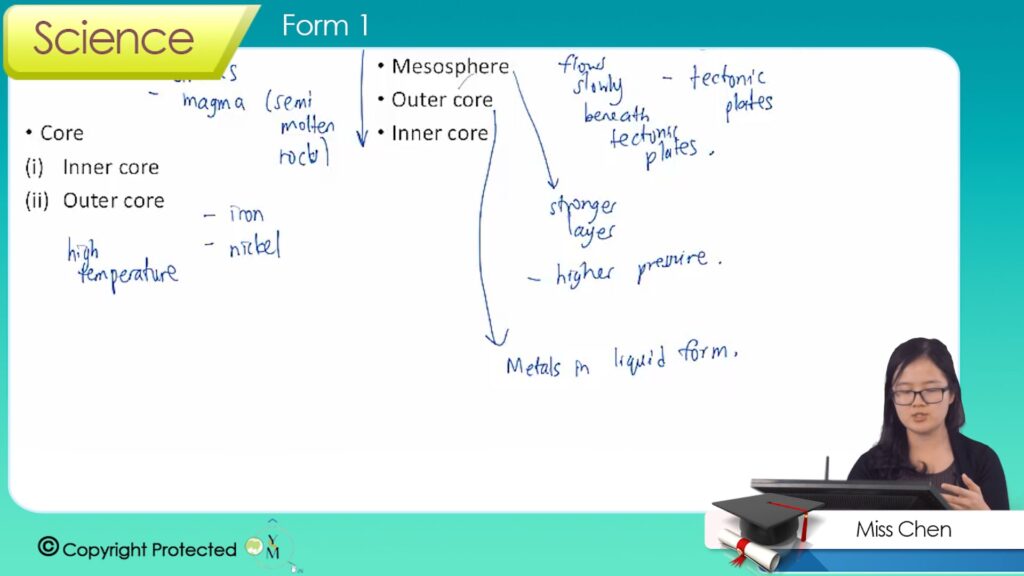 Science
Form 1
- magma (semi
molten
rock)
• Core
(i) Inner core
(ii) Outer core
- iron
- nickel
high
temperature
• Mesosphere
• Outer core
• Inner core
flows
slowly
beneath
tectonic
plates.
- tectonic
plates
stronger
layer
- higher pressure.
Metals in liquid form.
Miss Chen
© Copyright Protected
YM